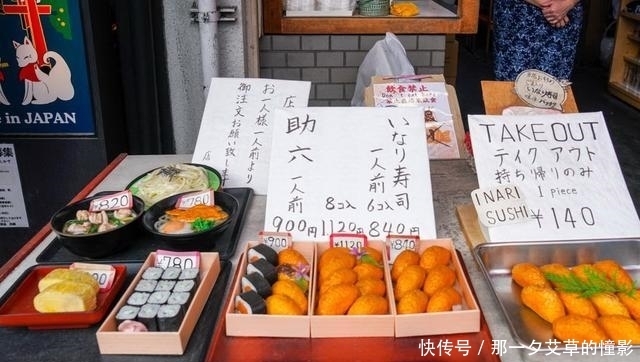 in JAPAN
お一人様一人前より
御注文お願い致します
店
助六
一人前
900円
いなり寿司
一人前
8コ入 6コ入
1120円 840円
飲食禁止
TAKE OUT
テイクアウト
持ち帰りのみ
1 piece
¥140
INARI
SUSHI
820
780
780
900
1120
840
快传号 / 那一夕艾草的憧憬